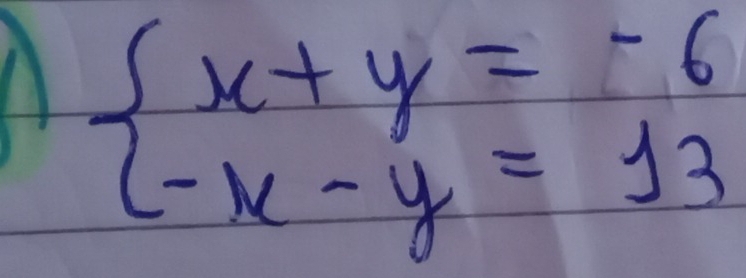 x + y = - 6
- x - y = 13